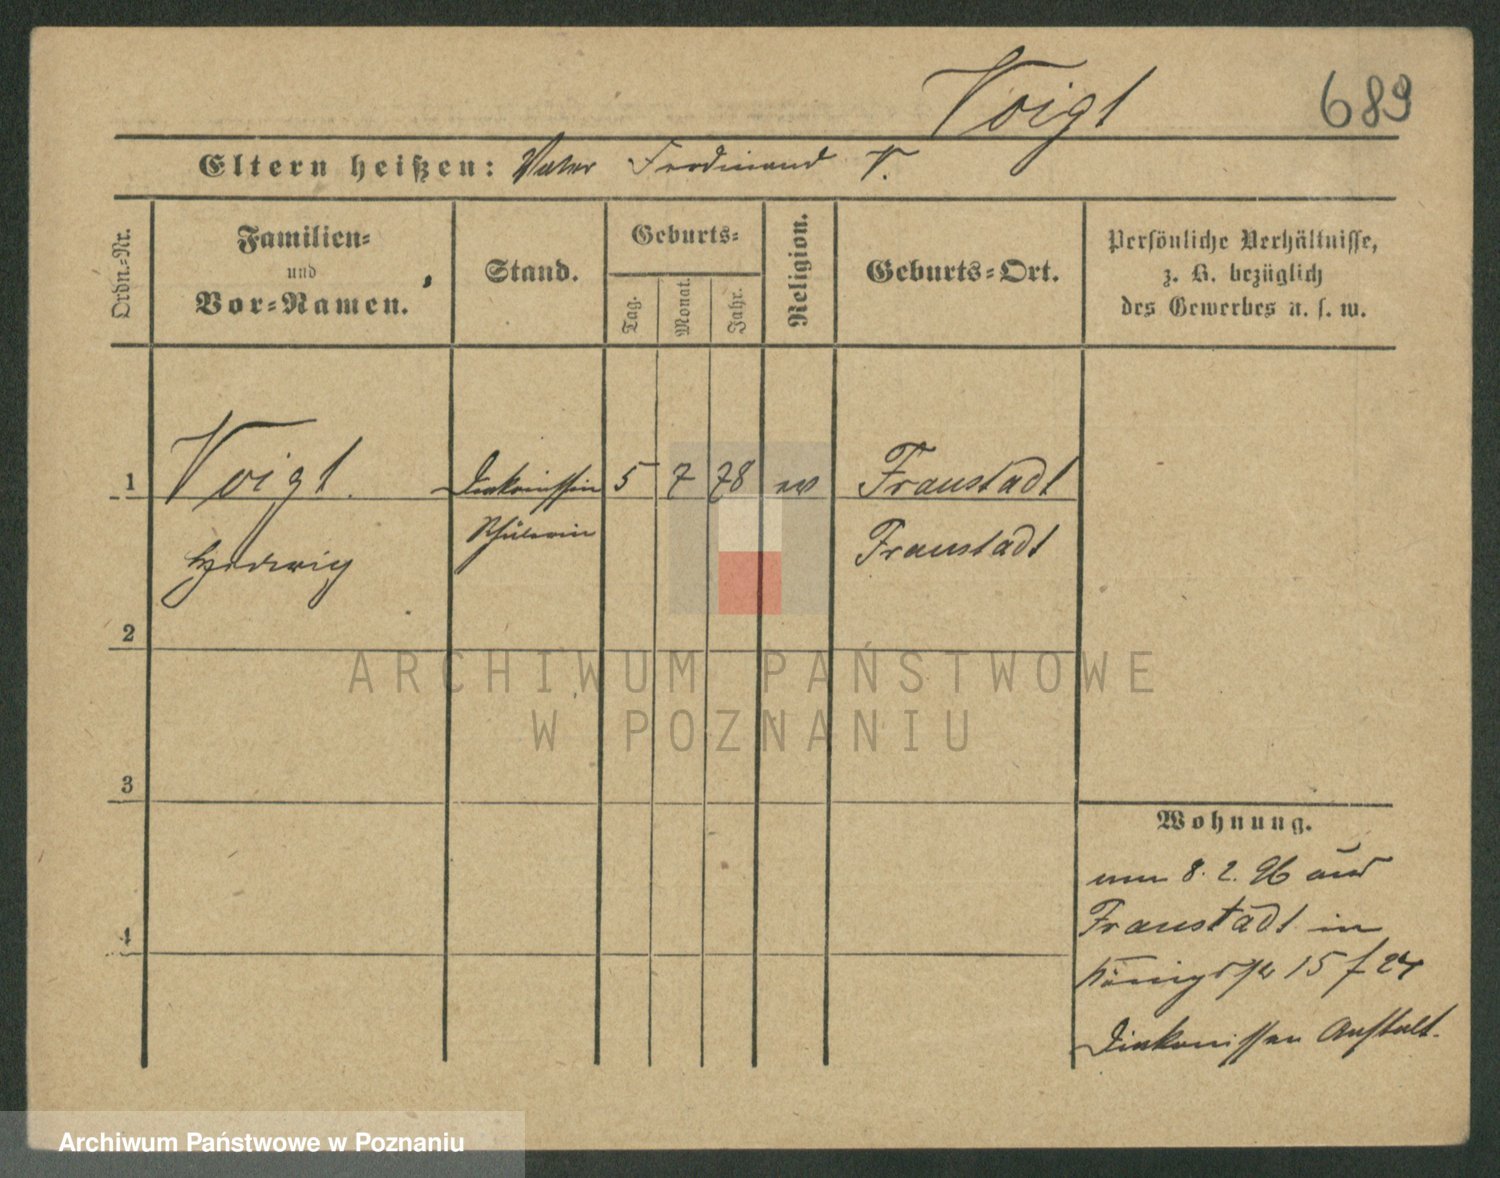 Voigt
689
Eltern heißen: Vater Ferdinand V.
Ordn.-Nr.
Familien-
und
Vor-Namen.
Stand.
Geburts-
Tag.
Monat.
Jahr.
Religion.
Geburts-Ort.
Persönliche Verhältnisse,
z. B. bezüglich
des Gewerbes u. s. w.
1 Voigt. Diakonissin 5 7 78 ev Fraustadt
Hedwig Schülerin Fraustadt
2
3
4
Wohnung.
8. 2. 96 aus
Fraustadt in
Königsstr 15
Diakonissen Anstalt.
ARCHIWUM PAŃSTWOWE
W POZNANIU
Archiwum Państwowe w Poznaniu